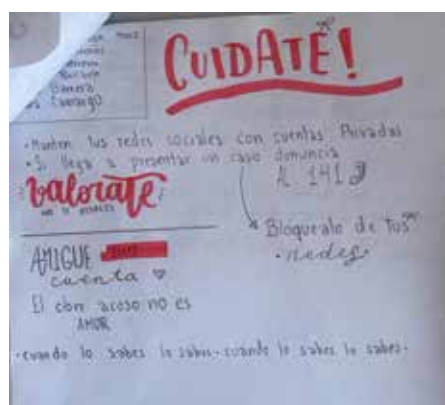 CUIDATE!
• Manten tus redes sociales con cuentas Privadas
• Si llega a presentar un caso denuncia
AL 141
Valorate
Bloquealo de tus
• redes •
AMIGUE
cuenta
El ciber acoso no es
AMOR
• cuando lo sabes lo sabes • cuando lo sabes lo sabes •